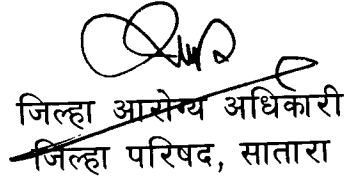 जिल्हा आरोग्य अधिकारी
जिल्हा परिषद, सातारा